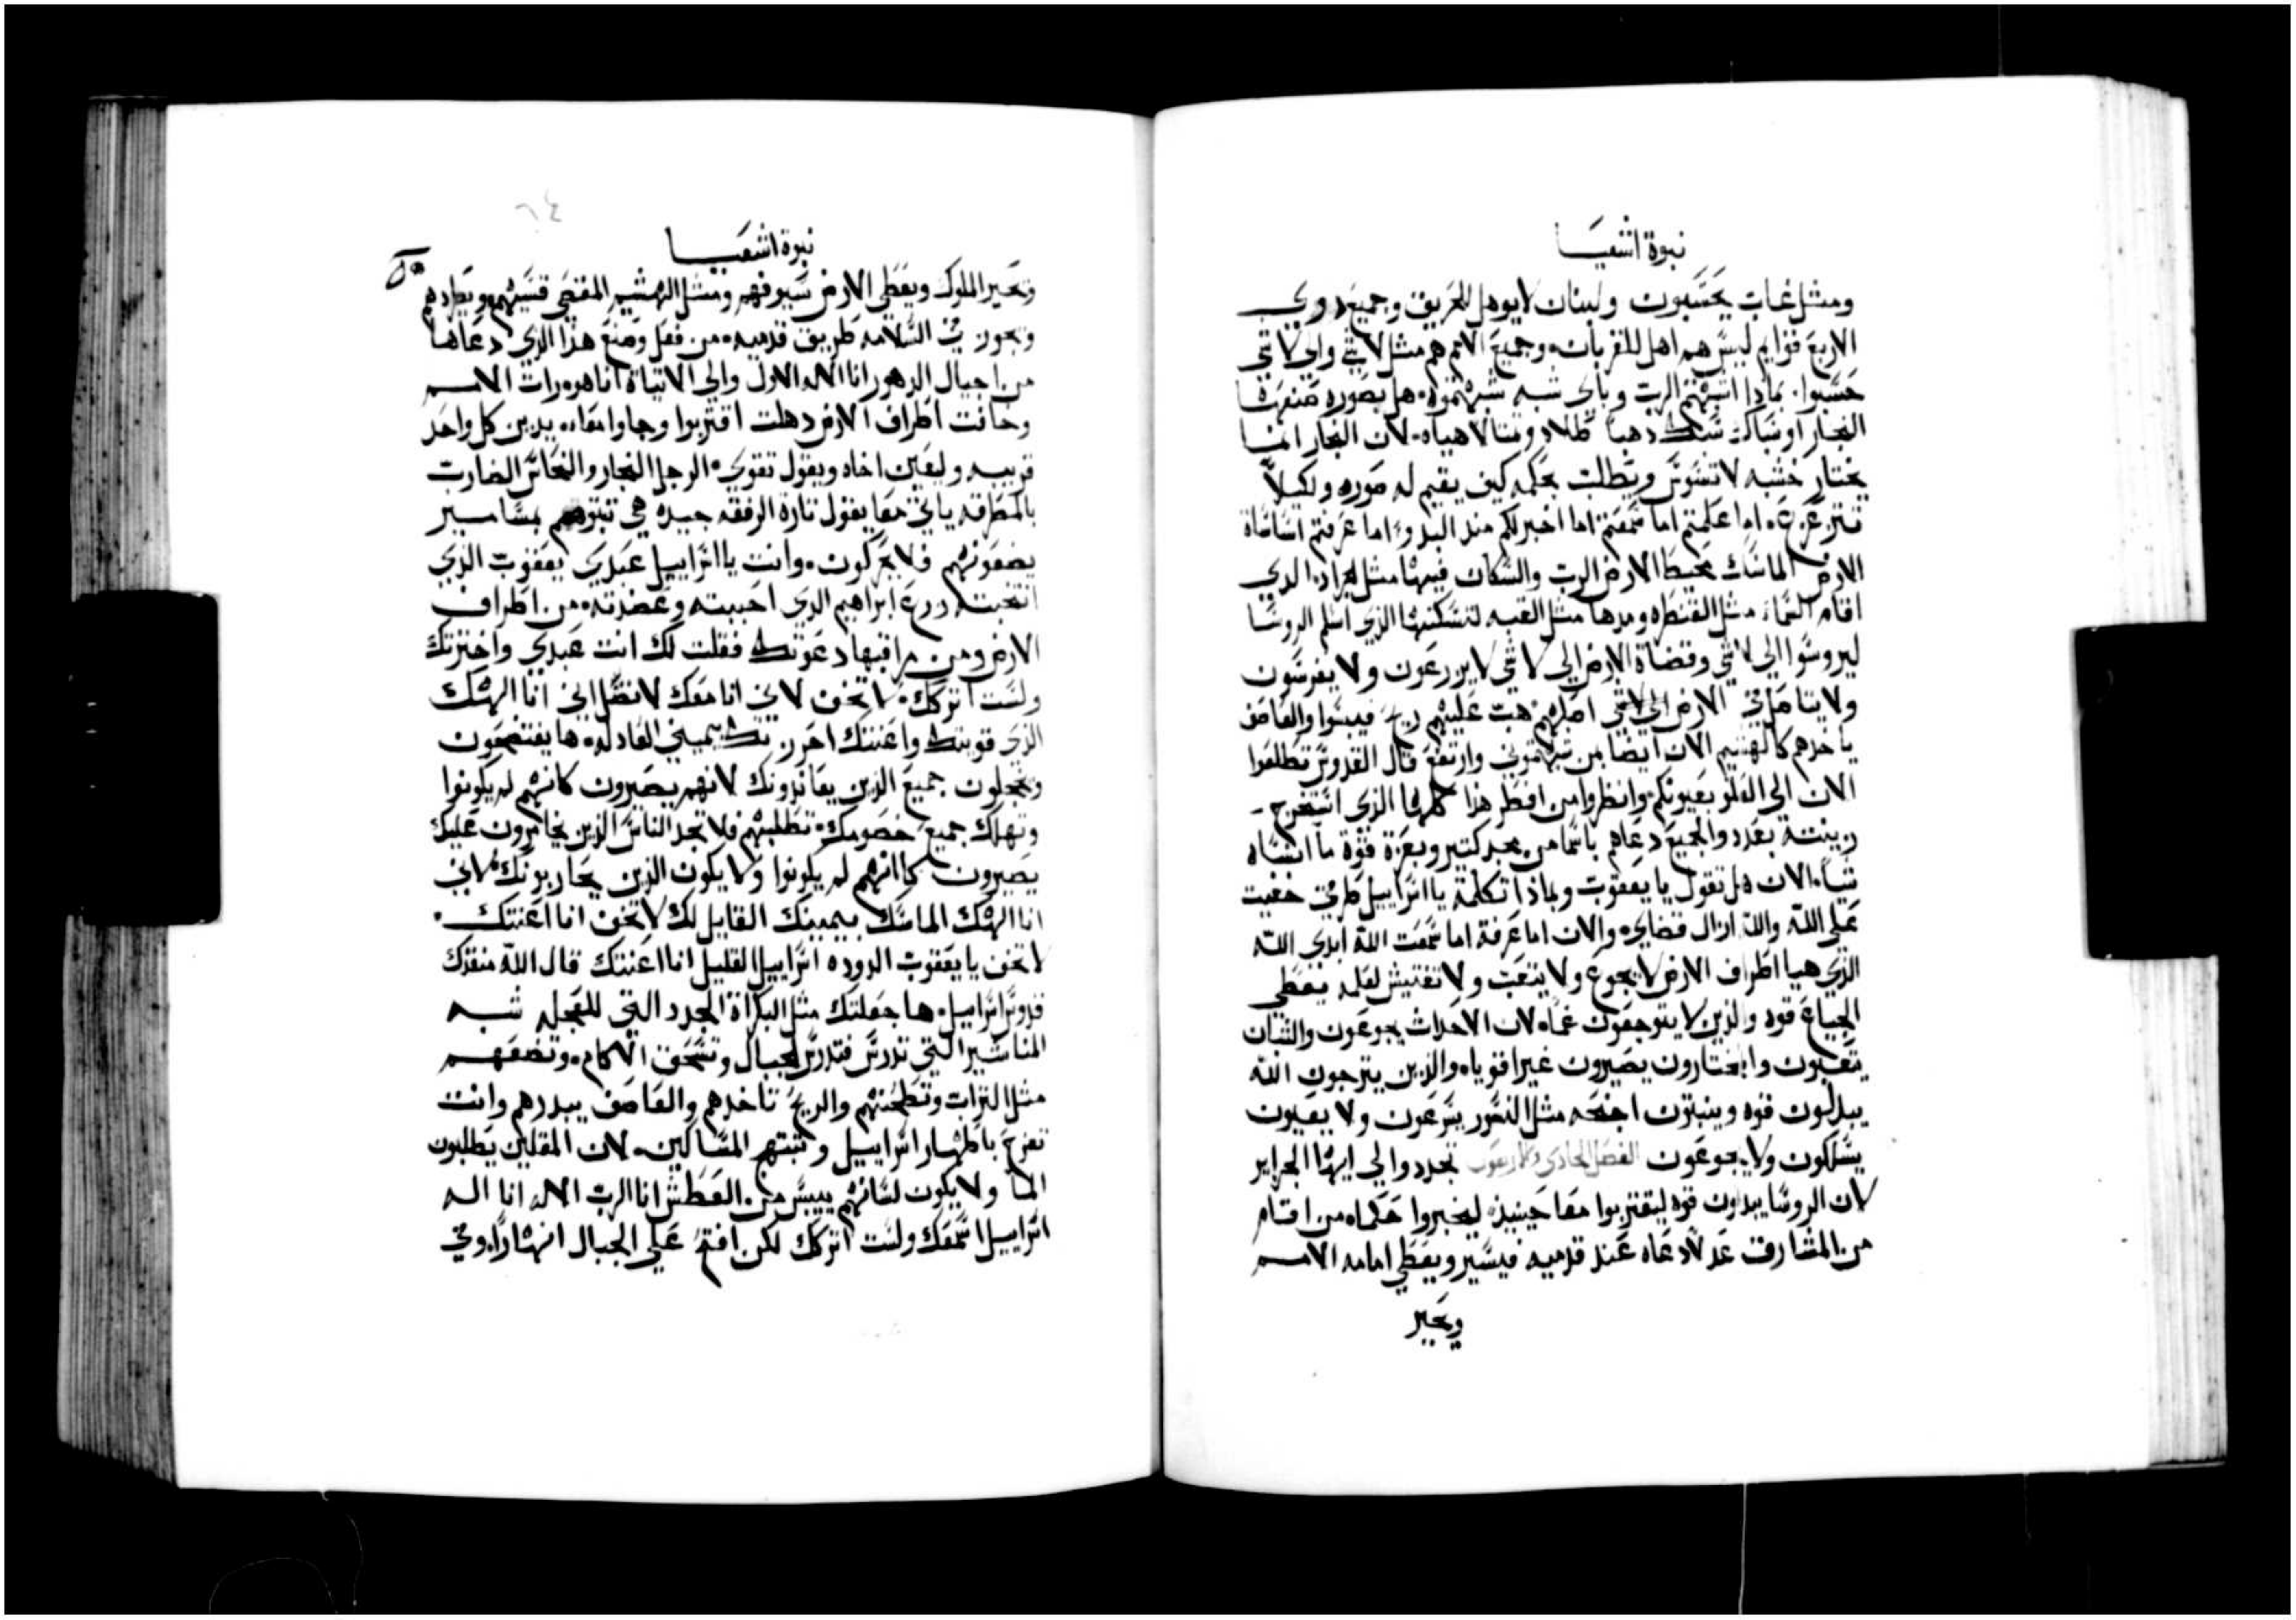 نبوة اشعيا
ومثل غبات يحسبون ولبنان لا يوهل للحريق وجميع دوي
الاربع قوايم ليس هم اهل للقربان وجميع الامم هم مثل لا شي والي لا شي
حسبوا بماذا اشبهتم الرب وباي شبه شبهتموه هل بصوره صنعها
النجار او سباك سبك دهبا طلاه ومثالا هياه لان النجار انما
يختار خشبه لا تسوس ويطلب بحكمه كيف يقيم له صوره وليلا
تتزعزع اما علمتم اما سمعتم اما اخبر لكم منذ البدو اما عرفتم اساساة
الارض الماسك محيط الارض الرب والسكان فيها مثل الجراد الدي
اقام السما مثل القنطره ومدها مثل القبه لتسكنها الذي اسلم الروسا
ليروسوا الي لا شي وقضاة الارض الي لا شي لا يزرعون ولا يغرسون
ولا يتاصل في الارض اصلهم هبت عليهم ريح فيبسوا والعاصف
ياخدهم كالهشيم الان ايضا بمن شبهتموني وارتفع قال القدوس تطلعوا
الان الي العلو بعيونكم وانظروا من اظهر هذا كلها الذي استخرج
زينتة بعدد والجميع دعاهم باسما من مجد كتير وبعزة قوة ما انساه
شيا الان هل تقول يا يعقوب وبماذا تكلمة يا اسراييل طرقي خفيت
علي الله والله ازال قضاي والان اما عرفة اما سمعت الله ابدي الله
الذي هيا اطراف الارض لا يجوع ولا يتعب ولا تفتيش لعلمه يعطي
الجياع قوه والذين لا يتوجعون غما لان الاحداث يجوعون والشبان
يتعبون والمختارون يصيرون غير اقوياه والذين يترجون الله
يبدلون قوه وينبتون اجنحه مثل النسور يسرعون ولا يعيون
يسلكون ولا يجوعون الفصل الحادي والاربعون تجددوا الي ايها الجزاير
لان الروسا يبدلون قوه ليقتربوا معا حينيذ ليخبروا حكماه من اقام
من المشارق عدلا دعاه عند قدميه فيسير ويعطي امامه الامم
ويحير
٦٤
نبوة اشعيا
ويحير الملوك ويعطي الارض سيوفهم ومثل الهشيم المقصي قسيهم ويطردهم
ويجوز في السلامه طريق قدميه من فعل وصنع هذا الذي دعاها
من اجيال الدهور انا الله الاول والي الاتياة انا هو رات الامم
وخافت اطراف الارض دهلت اقتربوا وجاوا معا يدين كل واحد
قريبه وليعين اخاه ويقول تقوي الرجل النجار والنحاس الضارب
بالمطرقه ياتي معا يقول تارة الرفقه جيده هي تبتوهم بمسامير
يضعونهم فلا يحركون وانت يا اسراييل عبدي يعقوب الذي
انتخبته زرع ابراهيم الدي احببته وعضدته من اطراف
الارض ومن مراقبها دعوتك فقلت لك انت عبدي واخترتك
ولست اتركك لا تخف لاني انا معك لا تضل اني انا الهك
الذي قويتك واعنتك احرزتك بيميني العادله ها يفتضحون
ويخجلون جميع الذين يعاندونك لانهم يصيرون كانهم لم يكونوا
وتهلك جميع خصومك تطلبهم فلا تجد الناس الذين يخامرون عليك
يصيرون كانهم لم يكونوا ولا يكون الذين يحاربونك لاني
انا الهك الماسك بيمينك القايل لك لا تخف انا اعنتك
لا تخف يا يعقوب الدوده اسراييل القليل انا اعنتك قال الله منقذك
قدوس اسراييل ها جعلتك مثل البكراة الجدد التي للعجله شبه
المناشير التي تدرس فتدرس الجبال وتسحق الاكام وتضعهم
مثل التراب وتطحنهم والريح تاخدهم والعاصف يبددهم وانت
تفرح باطهار اسراييل وتبتهج المساكين لان المقلين يطلبون
الما ولا يكون لسانهم ييبس من العطش انا الرب الاله انا اله
اسراييل اسمعك ولست اتركك لكن افتح علي الجبال انهارا وفي